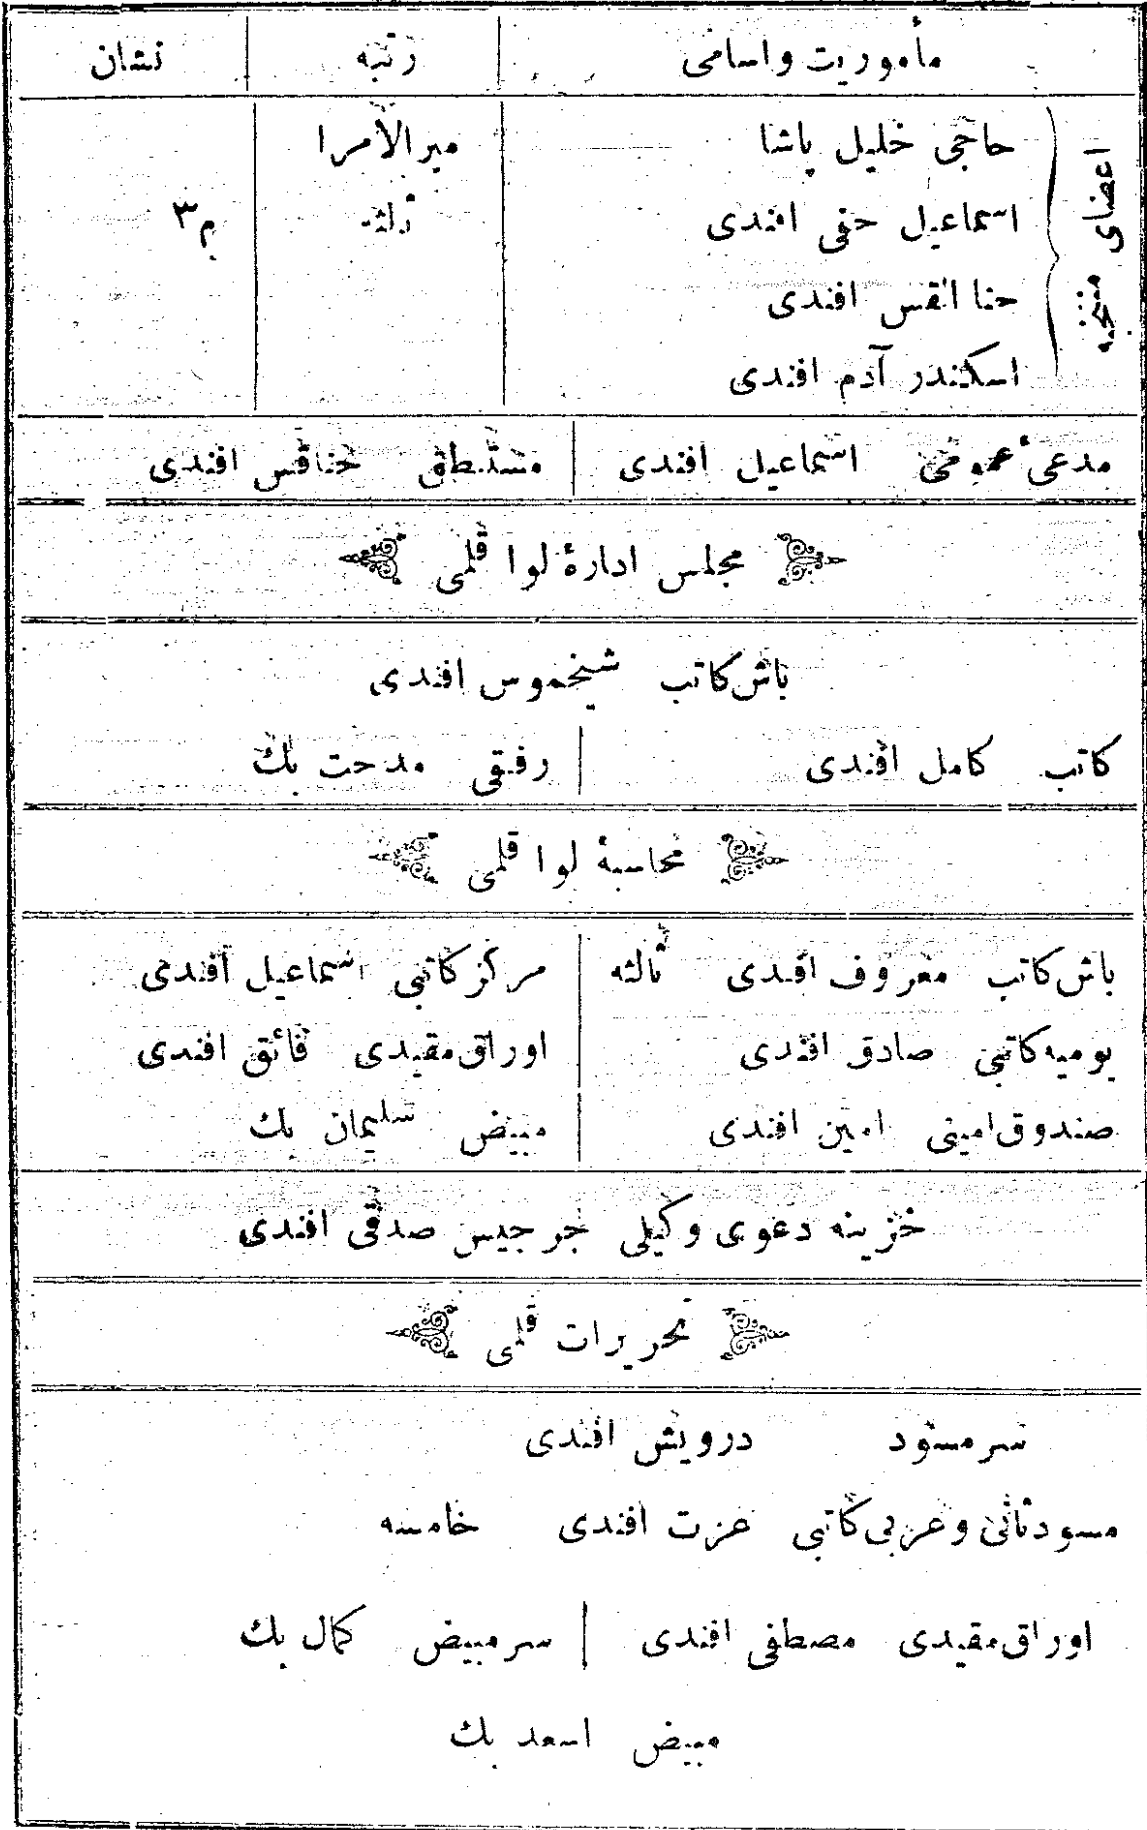 مأموريت واسامى رتبه نشان
اعضاى منتخبه
حاجى خليل پاشا ميرالامرا
اسماعيل حقى افندى ثالثه م٣
حنا القس افندى
اسكندر آدم افندى
مدعئ عمومى اسماعيل افندى مستنطق حناقس افندى
مجلس ادارۀ لوا قلمى
باش‌كاتب شيخموس افندى
كاتب كامل افندى رفيقى مدحت بك
محاسبۀ لوا قلمى
باش‌كاتب معروف افندى ثالثه مركزكاتبى اسماعيل افندى
يوميه‌كاتبى صادق افندى اوراق‌مقيدى فائق افندى
صندوق‌امينى امين افندى مبيض سليمان بك
خزينه دعوى وكيلى جرجيس صدقى افندى
تحريرات قلمى
سرمسود درويش افندى
مسودثانئ وعربى‌كاتبى عزت افندى خامسه
اوراق‌مقيدى مصطفى افندى سرمبيض كمال بك
مبيض اسعد بك